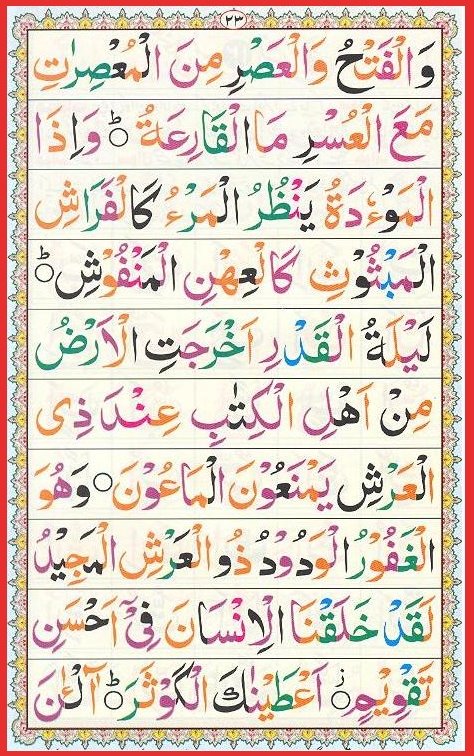 ٢٣
وَالْفَتْحُ وَالْعَصْرِ مِنَ الْمُعْصِرٰتِ
مَعَ الْعُسْرِ مَا الْقَارِعَةُ ○ؕ وَاِذَا
الْمَوْءٗدَةُ يَنْظُرُ الْمَرْءُ كَالْفَرَاشِ
الْمَبْثُوْثِ كَالْعِهْنِ الْمَنْفُوْشِ ○ؕ
لَيْلَةُ الْقَدْرِ اَخْرَجَتِ الْاَرْضُ
مِنْ اَهْلِ الْكِتٰبِ عِنْدَ ذِى
الْعَرْشِ يَمْنَعُوْنَ الْمَاعُوْنَ ○ وَهُوَ
الْغَفُوْرُ الْوَدُوْدُ ذُو الْعَرْشِ الْمَجِيْدُ
لَقَدْ خَلَقْنَا الْاِنْسَانَ فِىْٓ اَحْسَنِ
تَقْوِيْمٍ ○ز اَعْطَيْنٰكَ الْكَوْثَرَ ○ؕ آلْـٰٔنَ